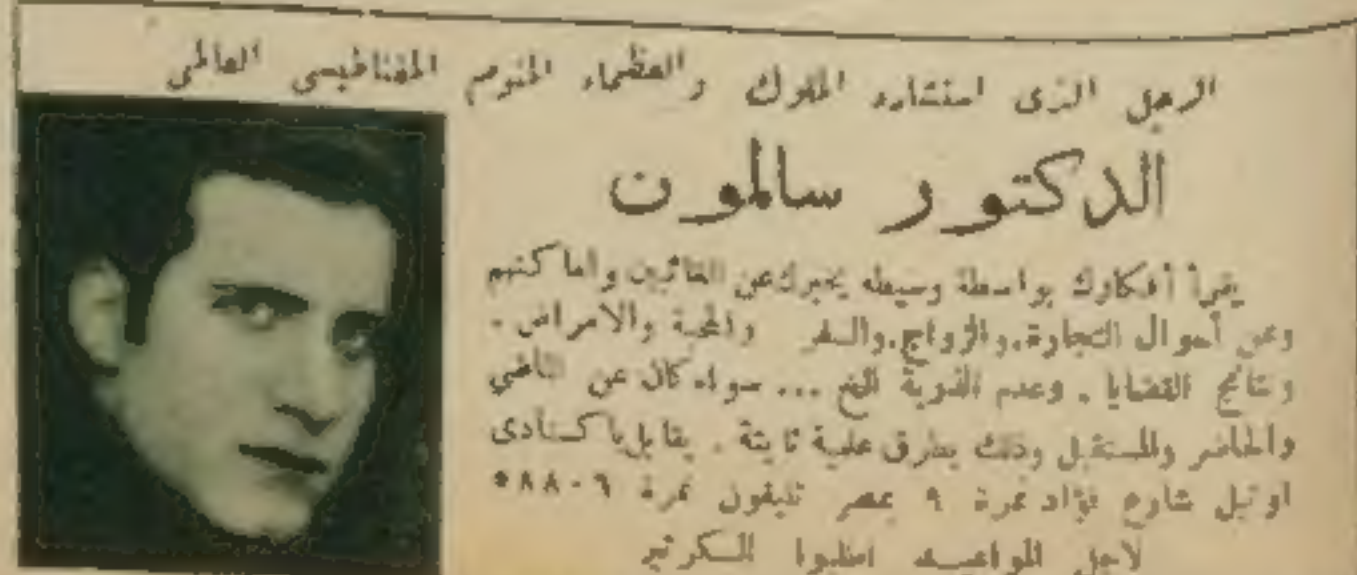 الرجل الذى استشاره الملوك والعظماء المنوم المغناطيسى العالمى
الدكتور سالمون
يقرأ أفكارك بواسطة وسيطه يخبرك عن الغائبين واماكنهم
وعن أحوال التجارة.والزواج.والسفر والمحبة والامراض.
ونتائج القضايا. وعدم الذرية الخ ... سواء كان عن الماضي
والحاضر والمستقبل وذلك بطرق علمية ثابتة. يقابل
اوتيل شارع فؤاد نمرة ٩ بمصر تليفون نمرة
لاجل المواعيد اطلبوا السكرتير